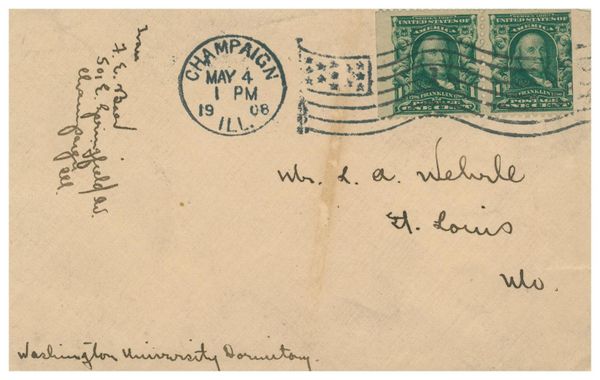 from
F. E.
501 E. Springfield Av.
Champaign
Ill.
CHAMPAIGN
MAY 4
1 PM
19 08
ILL.
SERIES 1902
UNITED STATES OF
AMERICA
FRANKLIN
POSTAGE
ONE CENT
SERIES 1902
UNITED STATES OF
AMERICA
FRANKLIN
POSTAGE
ONE CENT
Mr. L. A. Wehrle
St. Louis
Mo.
Washington University Dormitory.